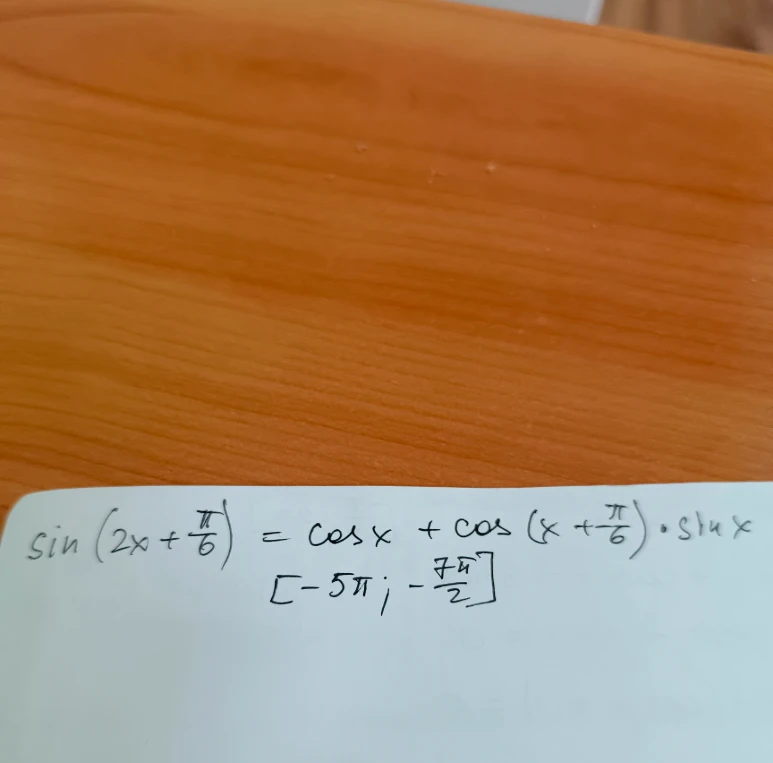 sin (2x + π/6) = cos x + cos (x + π/6) · sin x
[-5π; -7π/2]